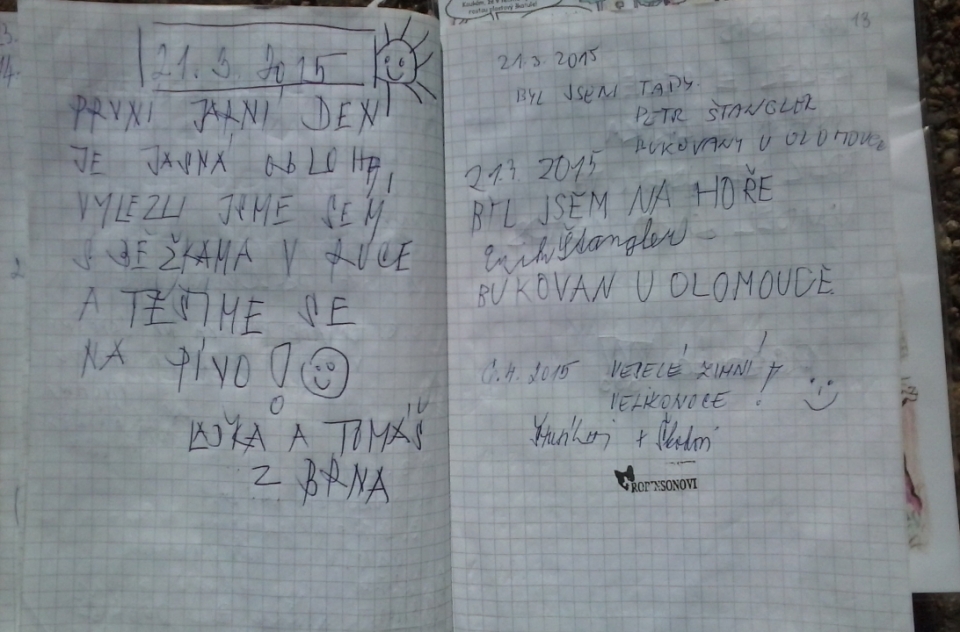 21. 3. 2015
PRVNÍ JARNÍ DEN
JE JASNÁ OBLOHA,
VYLEZLI JSME SEM
S BĚŽKAMA V RUCE
A TĚŠÍME SE
NA PIVO!
A TOMÁŠ
Z BRNA
13
21.3. 2015
BYL JSEM TADY
PETR ŠTANGLER
BUKOVANY U OLOMOUCE
21.3. 2015
BYL JSEM NA HOŘE
Erik Štangler
BUKOVAN U OLOMOUCE
6.4. 2015 VESELÉ ZIMNÍ
VELIKONOCE!
ROBINSONOVI